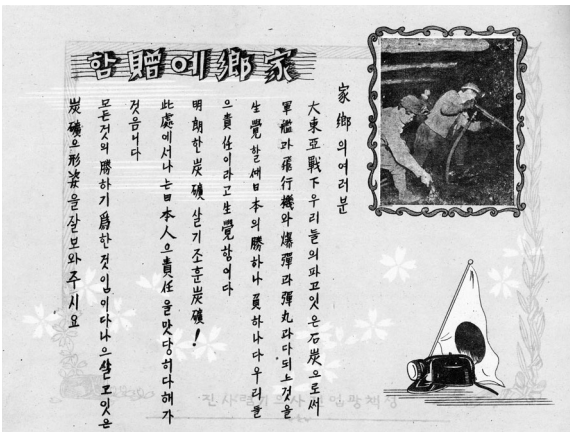 家鄉에贈함
家鄉의여러분
大東亞戰下우리들의파고잇은石炭으로써
軍艦과飛行機와爆彈과彈丸과다되느것을
生覺할세日本의勝하나負하나다우리들
으責任이라고生覺함여다
明朗한炭礦살기조훈炭礦!
此處에서나는日本人으責任을맛당허다해가
것음니다
모든것의勝하기爲한것임이다나으살고잇은
炭礦으形姿을잘보와주시요